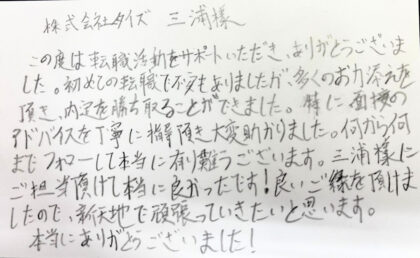 株式会社タイズ 三浦様
この度は転職活動をサポートいただき、ありがとうございま
した。初めての転職で不安もありましたが、多くのお力添えを
頂き、内定を勝ち取ることができました。特に面接の
アドバイスを丁寧に指導頂き、大変助かりました。何から何
までフォローして本当に有り難うございます。三浦様に
ご担当頂けて本当に良かったです！良いご縁を頂けま
したので、新天地で頑張っていきたいと思います。
本当にありがとうございました！